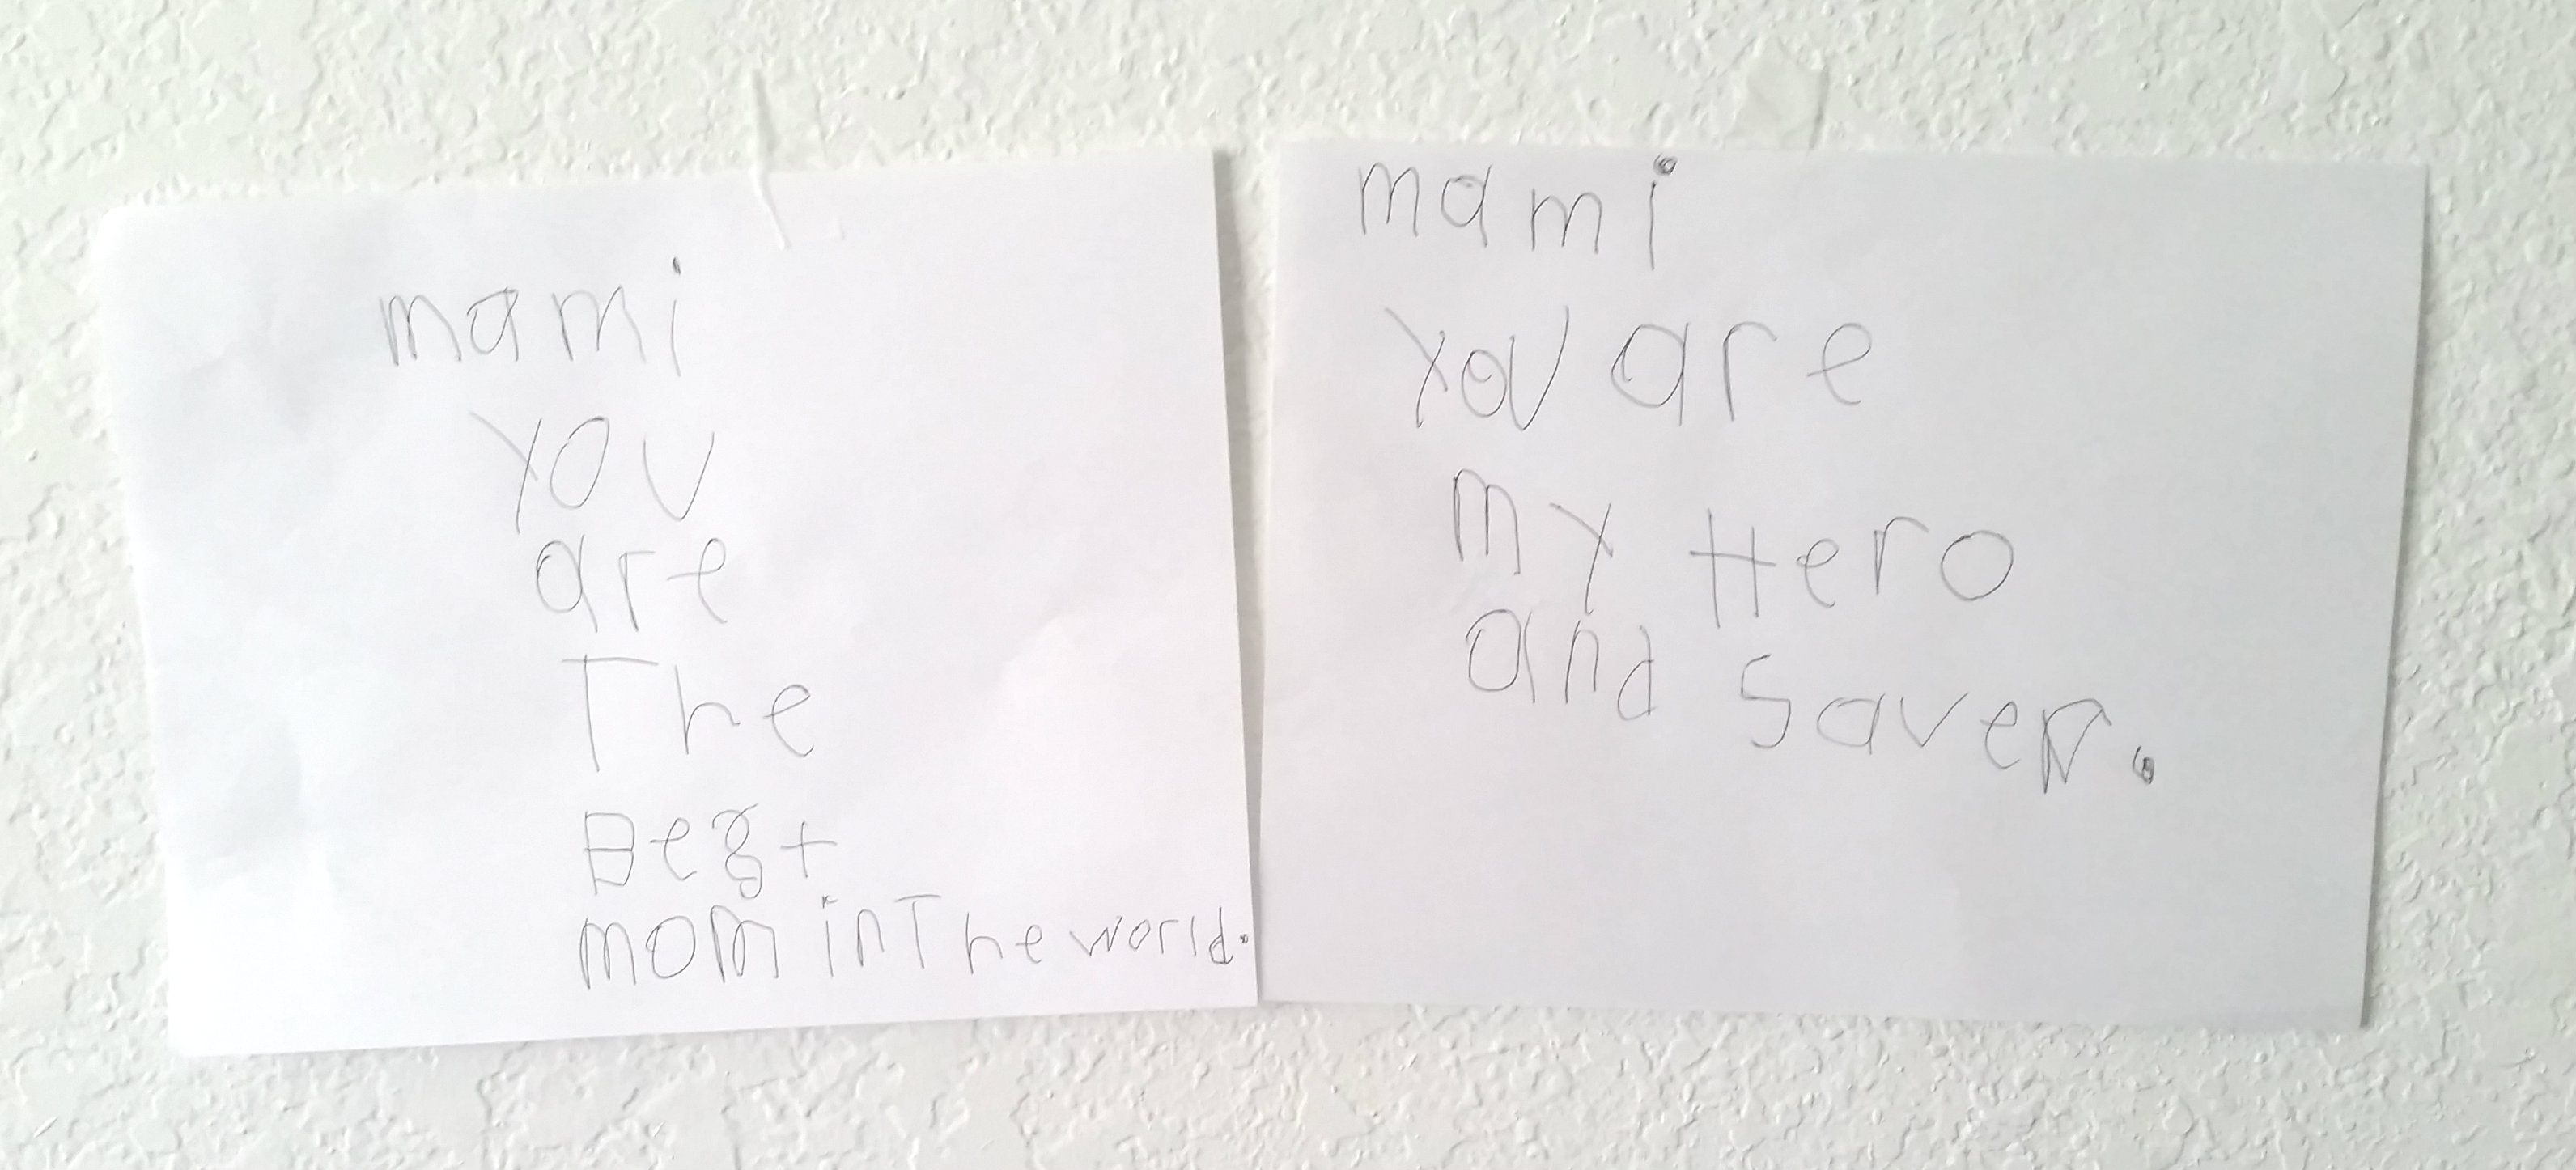 mami
you
are
The
Best
mom in The world.
mami
you are
my Hero
and Saver.